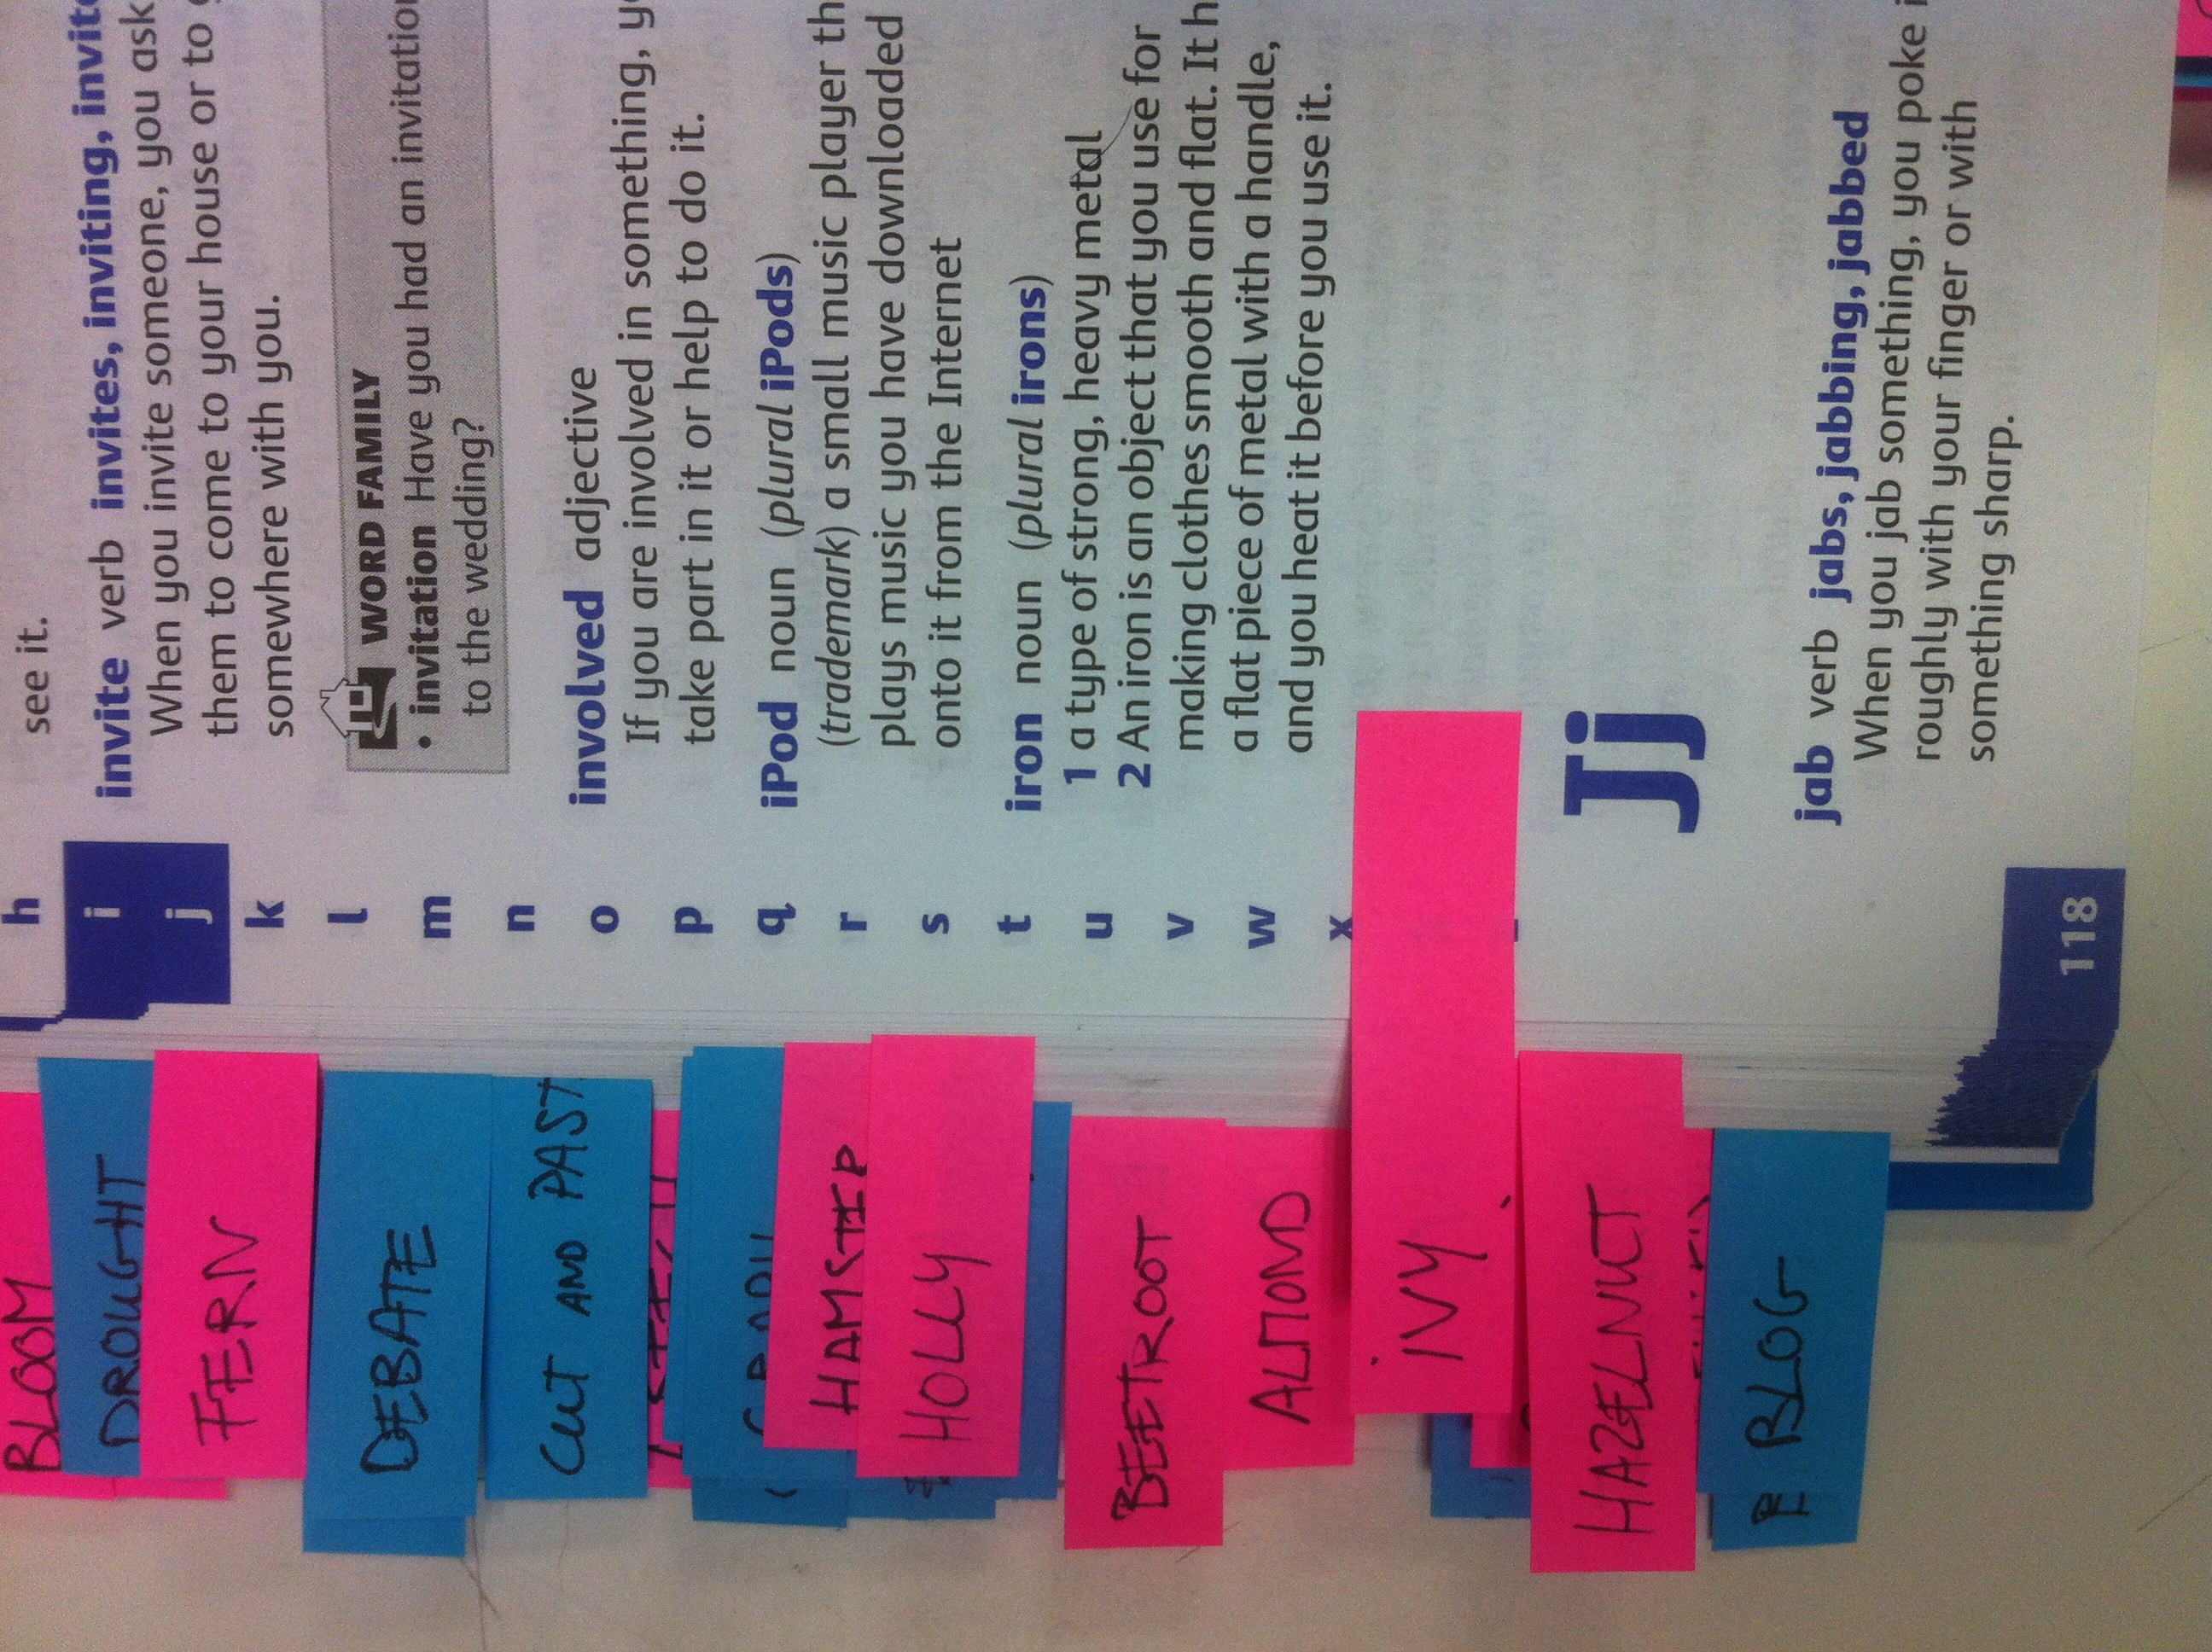 see it.
invite verb invites, inviting,
When you invite someone, you ask
them to come to your house or to
somewhere with you.
WORD FAMILY
• invitation Have you had an invitation
to the wedding?
involved adjective
If you are involved in something,
take part in it or help to do it.
iPod noun (plural iPods)
(trademark) a small music player
plays music you have downloaded
onto it from the Internet
iron noun (plural irons)
1 a type of strong, heavy metal
2 An iron is an object that you use for
making clothes smooth and flat. It
a flat piece of metal with a handle,
and you heat it before you use it.
Jj
jab verb jabs, jabbing, jabbed
When you jab something, you poke
roughly with your finger or with
something sharp.
h
i
j
k
l
m
n
o
p
q
r
s
t
u
v
w
x
118
BLOOM
DROUGHT
FERN
DEBATE
CUT AND PAST
HOLLY
BEETROOT
ALMOND
iVY
HAZELNUT
BLOG